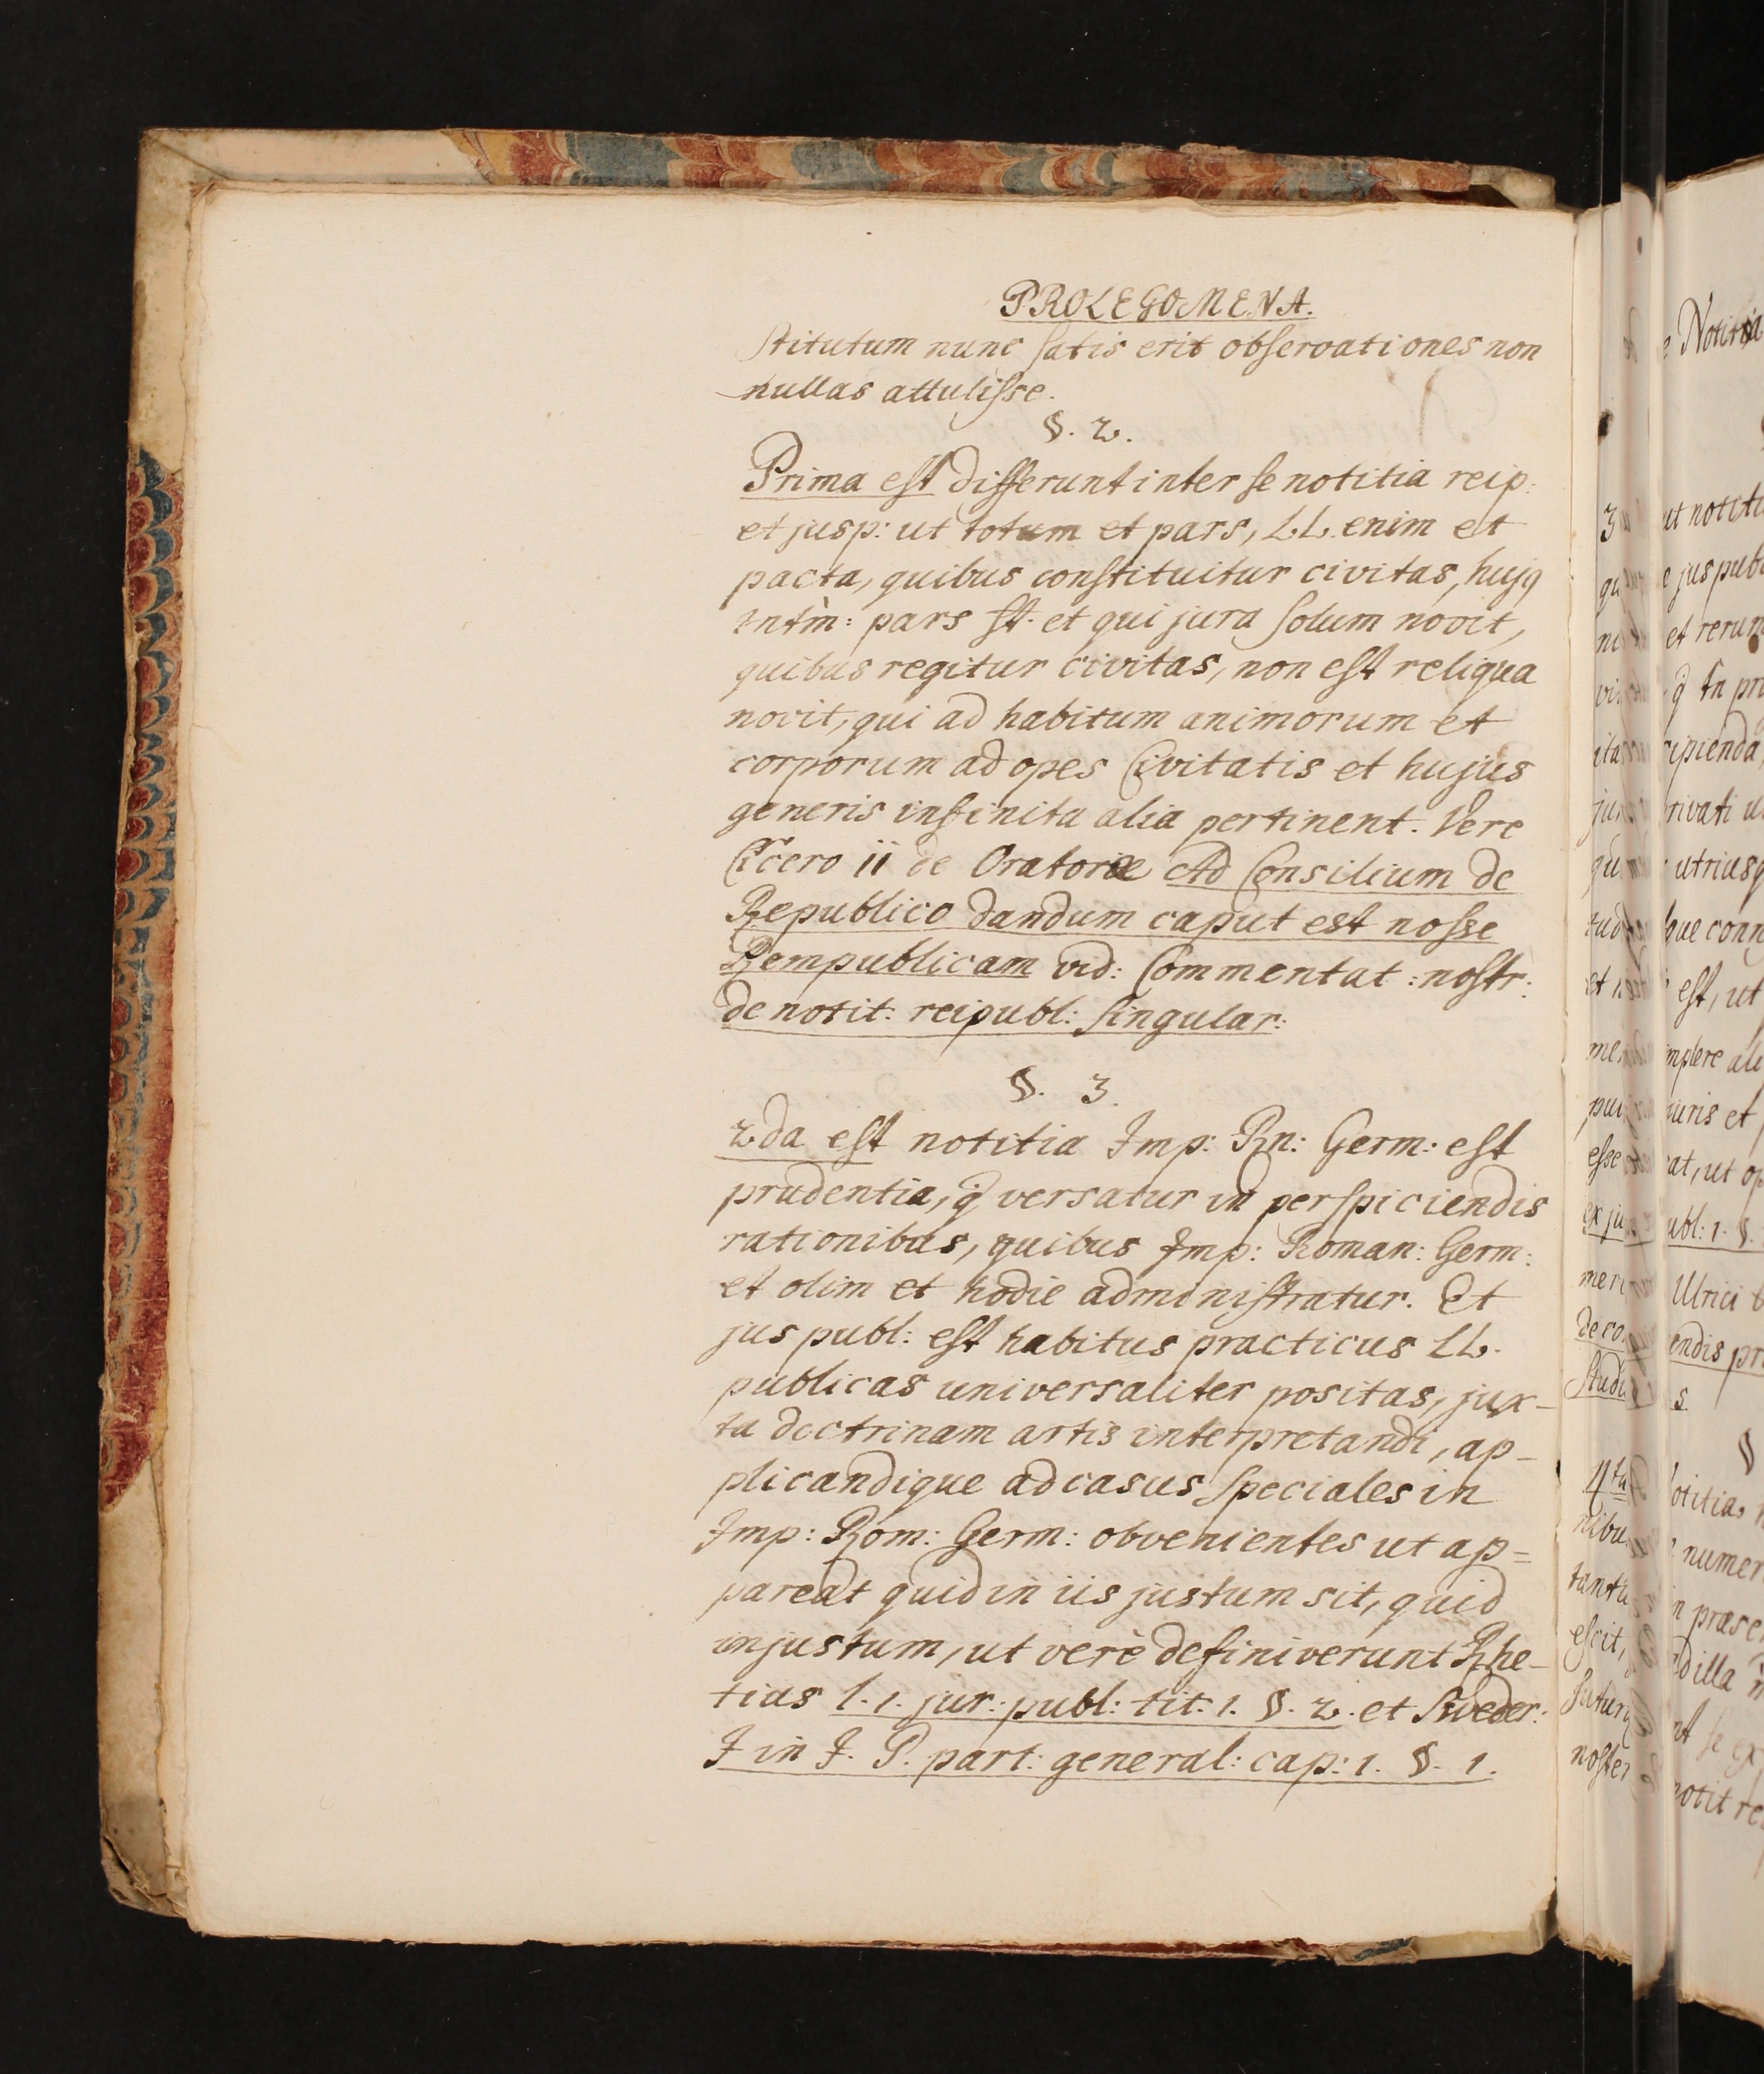 PROLEGOMENA.
stitutum nunc satis erit observationes non
nullas attulisse.
§. 2.
Prima est differunt inter se notitia reip:
et jusp: ut totum et pars, LL. enim et
pacta, quibus constituitur civitas, hujq
tntm̀: pars st. et qui jura solum novit,
quibus regitur civitas, non est reliqua
novit, qui ad habitum animorum et
corporum ad opes Civitatis et hujus
generis infinita alia pertinent. Vere
Cicero ii de Oratore Ad Consilium de
Republico dandum caput est nosse
Rempublicam vid: Commentat: nostr:
de notit: reipubl: singular:
§. 3.
2da est notitia Imp: Rn: Germ: est
prudentia, q̄ versatur in perspiciendis
rationibus, quibus Imp: Roman: Germ:
et olim et hodie administratur. Et
jus publ: est habitus practicus LL.
publicas universaliter positas, jux-
ta doctrinam artis interpretandi, ap-
plicandique ad casus speciales in
Imp: Rom: Germ: obvenientes ut ap=
pareat quid in iis justum sit, quid
injustum, ut verè definiverunt Rhe-
tius l. 1. jur: publ: tit: 1. §. 2. et Sweder:
I in I. P. part: general: cap: 1. §. 1.